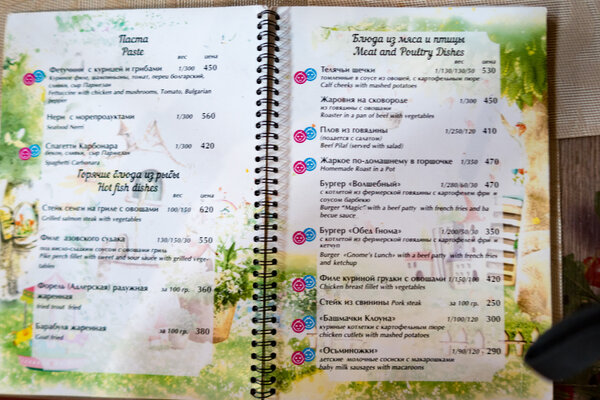 Паста
Paste
вес цена
Фетучини с курицей и грибами 1/300 450
Куриное филе, шампиньоны, томат, перец болгарский,
сливки, сыр Пармезан
Fettuccine with chicken and mushrooms, Tomato, Bulgarian
pepper
Нери с морепродуктами 1/300 560
Seafood Nern
Спагетти Карбонара 1/300 420
бекон, сливки, сыр Пармезан
Spaghetti Carbonara
Горячие блюда из рыбы
Hot fish dishes
вес цена
Стейк семги на гриле с овощами 100/150 620
Grilled salmon steak with vegetables
Филе азовского судака 130/150/30 550
под кисло-сладким соусом с овощами гриль
Pike perch fillet with sweet and sour sauce with grilled vege-
tables
Форель (Адлерская) радужная за 100 гр. 360
жаренная
fried trout fried
Барабуля жаренная за 100 гр. 380
Goat fried
Блюда из мяса и птицы
Meat and Poultry Dishes
вес цена
Телячьи щечки 1/130/130/50 530
томленные в соусе из овощей, с картофельным пюре
Calf cheeks with mashed potatoes
Жаровня на сковороде 1/300 450
из говядины с овощами
Roaster in a pan of beef with vegetables
Плов из говядины 1/250/120 410
(подается с салатом)
Beef Pilaf (served with salad)
Жаркое по-домашнему в горшочке 1/350 470
Homemade Roast in a Pot
Бургер «Волшебный» 1/280/60/30 470
с котлетой из фермерской говядины с картофелем фри и
соусом барбекю
Burger "Magic" with a beef patty with french fries and ba
becue sauce
Бургер «Обед Гнома» 1/200/50/30 350
с котлетой из фермерской говядины с картофелем фри и
кетчуп
Burger «Gnome's Lunch» with a beef patty with french fries
and ketchup
Филе куриной грудки с овощами 1/150/100 420
Chicken breast fillet with vegetables
Стейк из свинины Pork steak за 100 гр 250
«Башмачки Клоуна» 1/100/120 300
куриные котлетки с картофельным пюре
chicken cutlets with mashed potatoes
«Осьминожки» 1/90/120 290
детские молочные сосиски с макарошками
baby milk sausages with macaroons